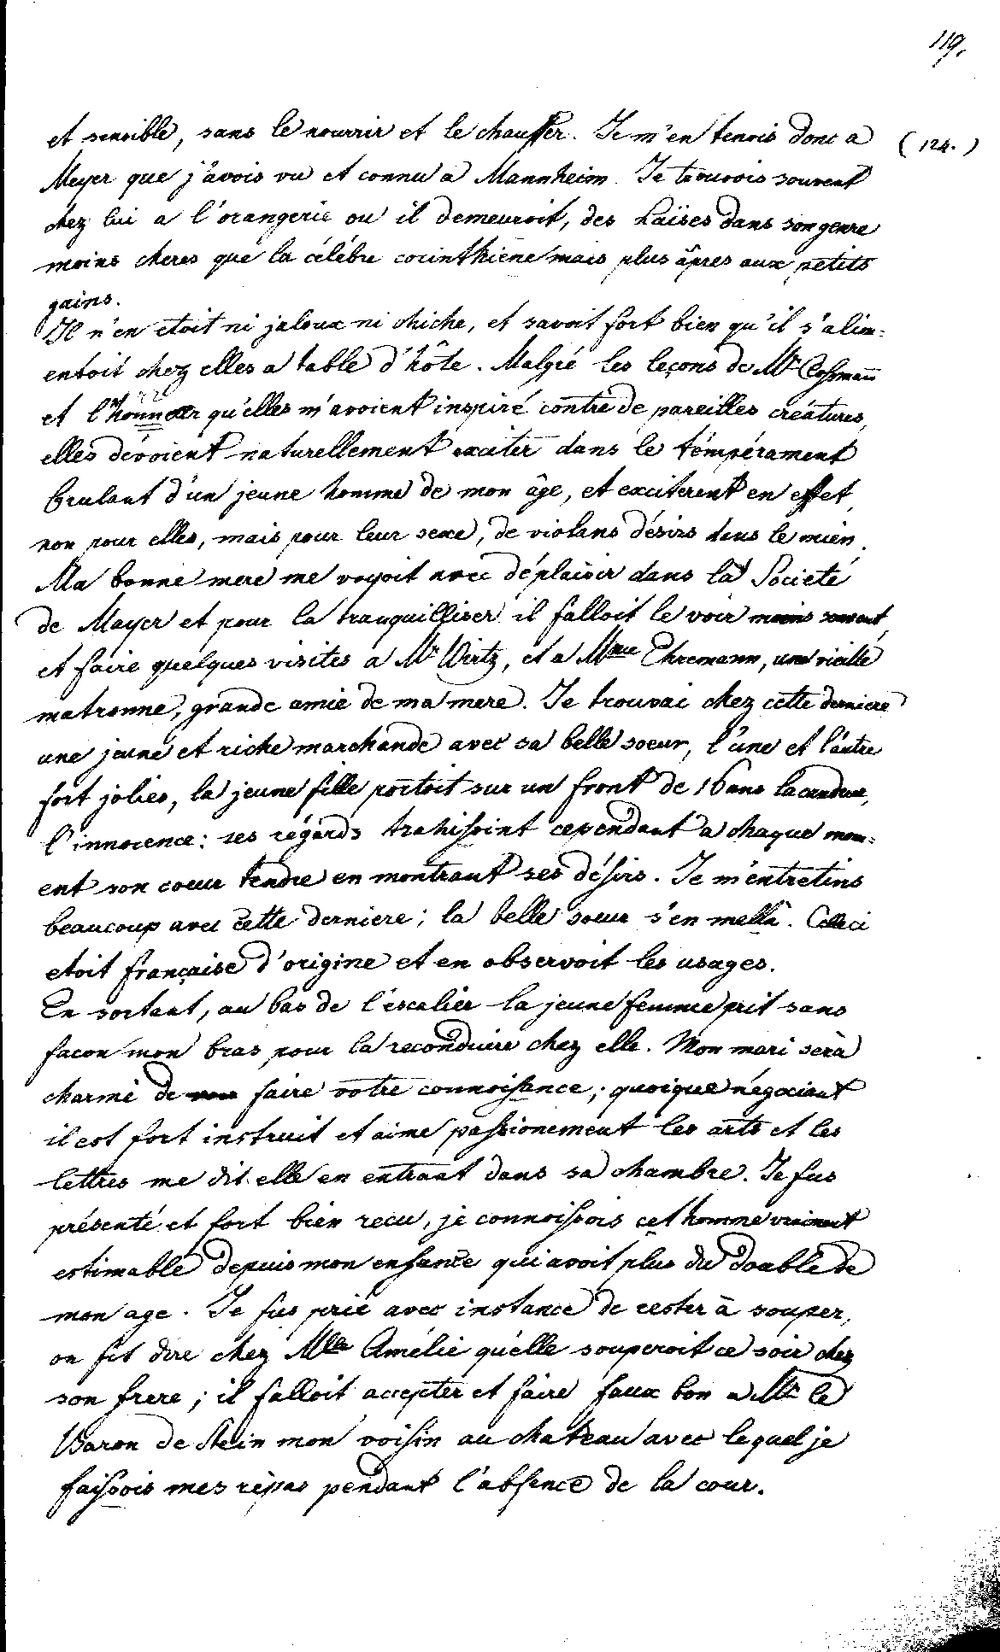 119.
et sensible, sans le nourrir et le chauffer. Je m'en tenois donc a (124.)
Meyer que j'avois vu et connu a Mannheim. Je trouvois souvent
chez lui a l'orangerie ou il demeuroit, des Laïses dans son genre
moins cheres que la célébre corinthiene mais plus âpres aux petits
gains.
Il n'en etoit ni jaloux ni chiche, et savoit fort bien qu'il s'alim-
entoit chez elles a table d'hôte. Malgré les leçons de Mr. Cossmann
et l' qu'elles m'avoient inspiré contre de pareilles créatures,
elles devoient naturellement exciter dans le tempérament
brulant d'un jeune homme de mon âge, et exciterent en effet,
non pour elles, mais pour leur sexe, de violans désirs dans le mien.
Ma bonne mere me voyoit avec déplaisir dans la Societé
de Mayer et pour la tranquilliser il falloit le voir moins souvent,
et faire quelques visites a Mr Wirtz, et a Mme Ehremann, une vieille
matronne, grande amie de ma mere. Je trouvai chez cette derniere
une jeune et riche marchande avec sa belle soeur, l'une et l'autre
fort jolies, la jeune fille portoit sur un front de 16 ans la candeur,
l'innocence: ses régards trahissoint cependant a chaque mom-
ent son coeur tendre en montrant ses désirs. Je m'entretins
beaucoup avec cette derniere; la belle soeur s'en mella. Celle ci
etoit française d'origine et en observoit les usages.
En sortant, au bas de l'escalier la jeune femme prit sans
facon mon bras pour la reconduire chez elle. Mon mari serà
charmé de faire votre connoissance; quoique négociant
il est fort instruit et aime passionement les arts et les
lettres me dit elle en entrant dans sa chambre. Je fus
présenté et fort bien recu, je connoissois cet homme vraiment
estimable depuis mon enfance qui avoit plus du double de
mon age. Je fus prié avec instance de rester à souper,
on fit dire chez Mlle Amélie qu'elle souperoit ce soir chez
son frere; il falloit accepter et faire faux bon a Mr. le
Baron de Stein mon voisin au chateau avec lequel je
faissois mes repas pendant l'absence de la cour.